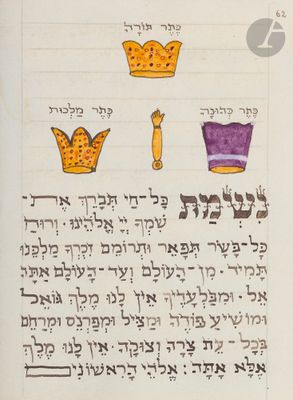 62
כֶּתֶר תּוֹרָה
כֶּתֶר כְּהוּנָּה
כֶּתֶר מַלְכוּת
נִשְׁמַת כָּל־חַי תְּבָרֵךְ אֶת־
שִׁמְךָ יְיָ אֱלֹהֵינוּ· וְרוּחַ
כָּל־בָּשָׂר תְּפָאֵר וּתְרוֹמֵם זִכְרְךָ מַלְכֵּנוּ
תָּמִיד· מִן־הָעוֹלָם וְעַד־הָעוֹלָם אַתָּה
אֵל· וּמִבַּלְעָדֶיךָ אֵין לָנוּ מֶלֶךְ גּוֹאֵל
וּמוֹשִׁיעַ פּוֹדֶה וּמַצִּיל וּמְפַרְנֵס וּמְרַחֵם
בְּכָל־עֵת צָרָה וְצוּקָה· אֵין לָנוּ מֶלֶךְ
אֶלָּא אָתָּה: אֱלֹהֵי הָרִאשׁוֹנִים